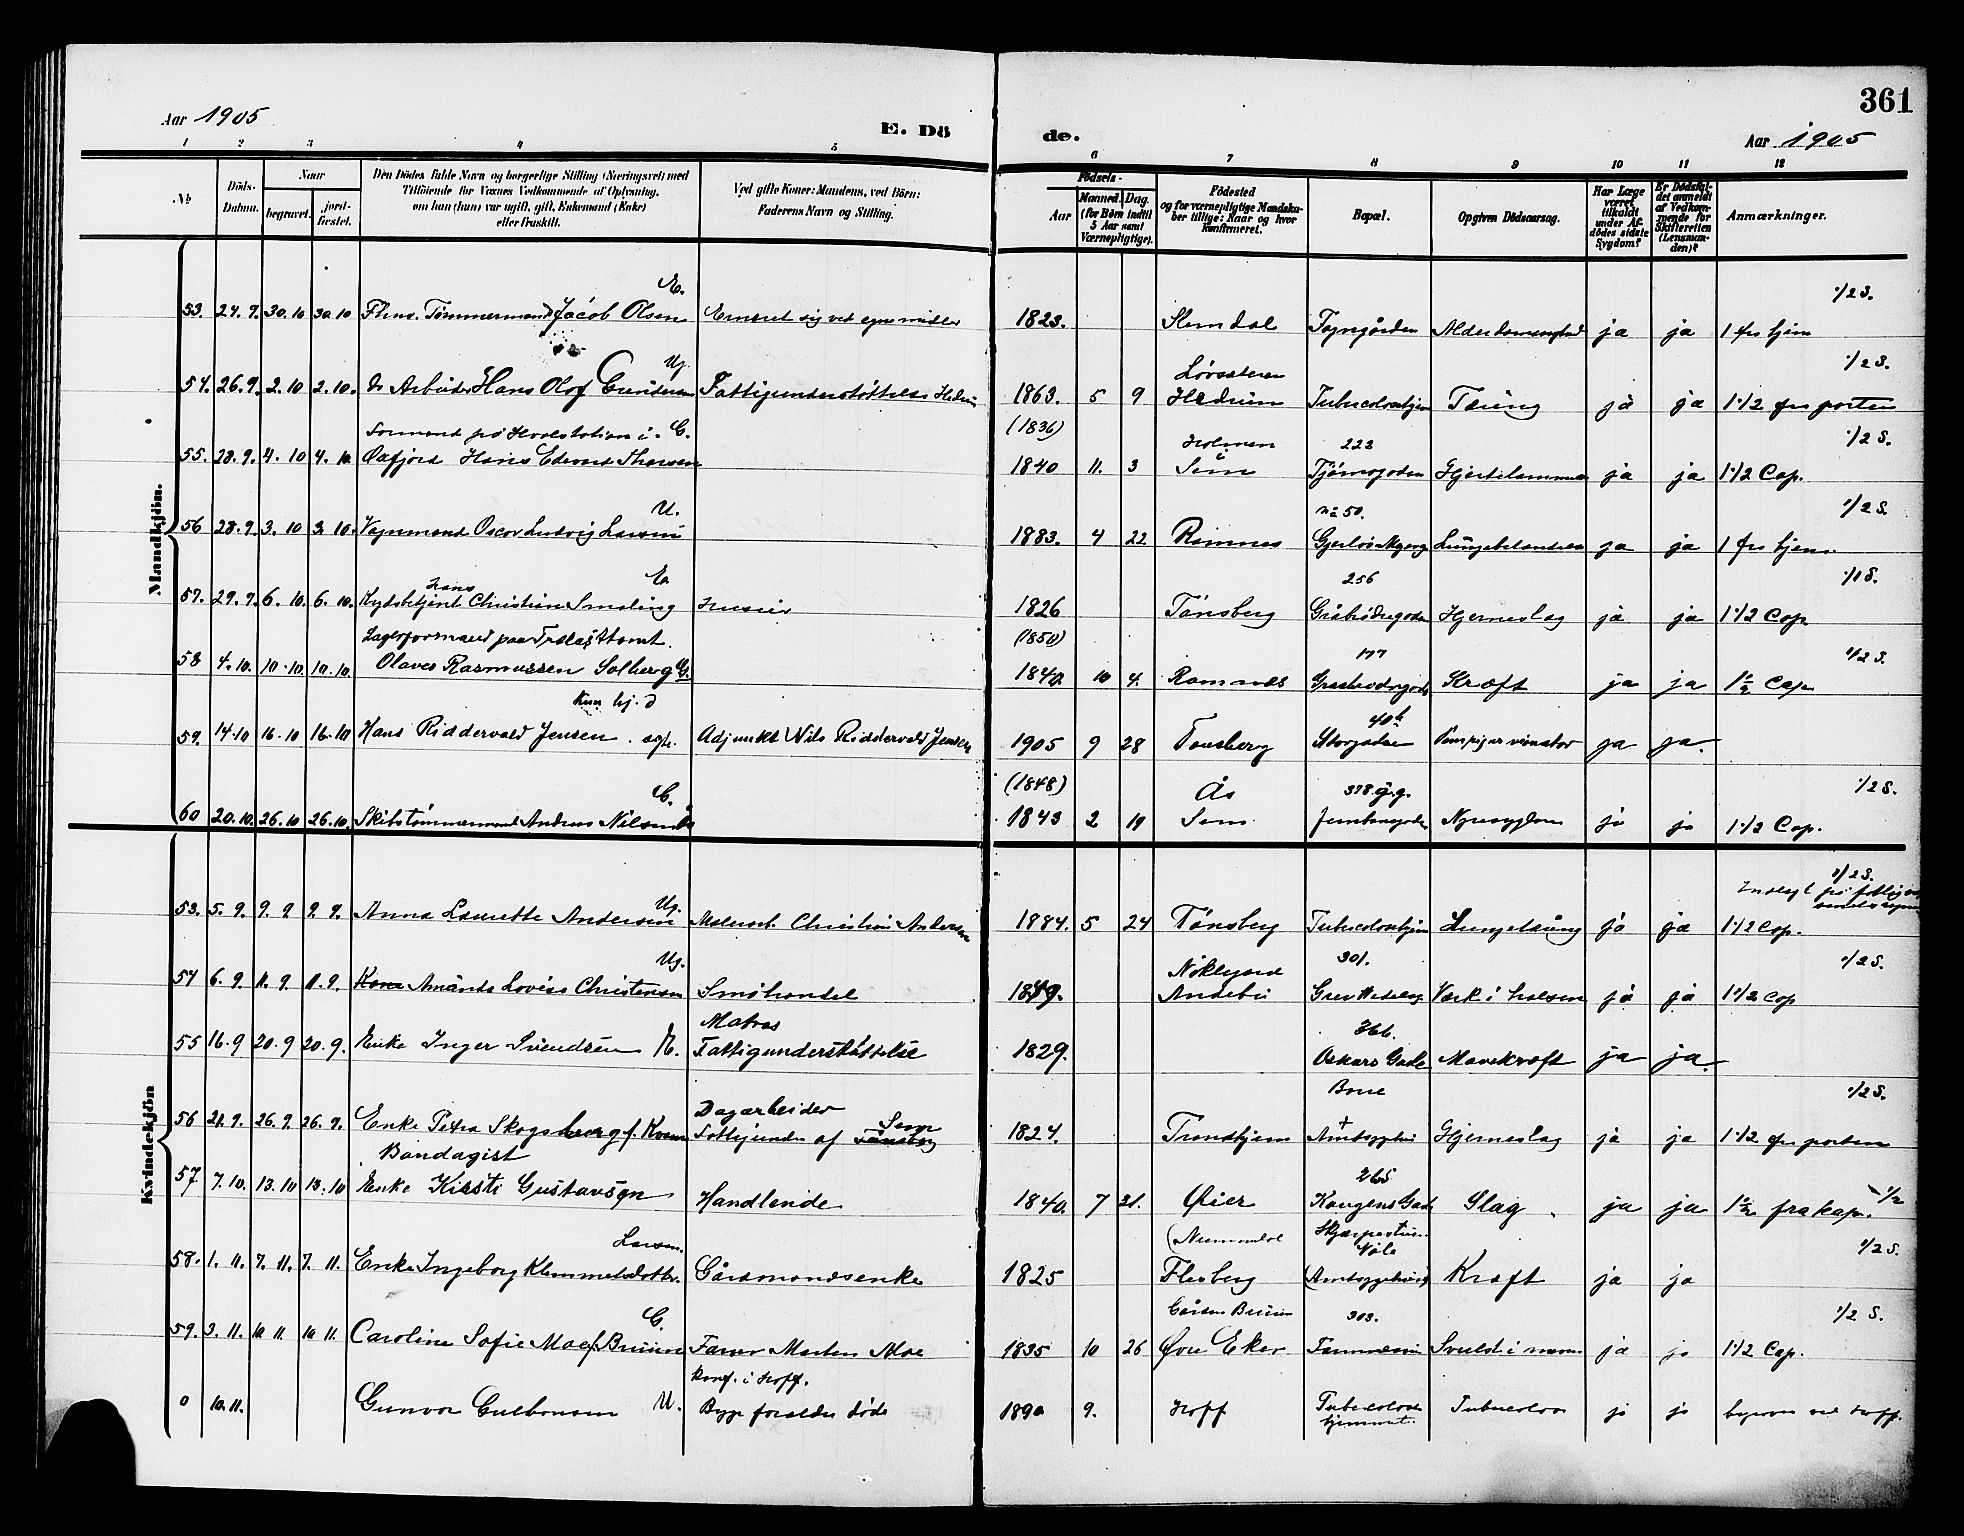 361
Aar 1905
E. Dö
de.
Aar 1905
1 2 3 4 5 6 7 8 9 10 11 12
No
Döds-Datum.
Naar
begravet.
jord-fæstet.
Den Dödes fulde Navn og borgerlige Stilling (Næringsvei) med
Tilföiende for Voxnes Vedkommende af Oplysning,
om han (hun) var ugift, gift, Enkemand (Enke)
eller fraskilt.
Ved gifte Koner: Mandens, ved Börn:
Faderens Navn og Stilling.
Födsels-
Aar
Maaned. Dag.
(for Börn indtil
5 Aar samt
Værnepligtige).
Födested
og for værnepligtige Mandska-
ber tillige: Naar og hvor
konfirmeret.
Bopæl.
Opgiven Dödsaarsag.
Har Læge
været
tilkaldt
under Af-
dödes sidste
Sygdom?
Er Dödsfal-
det anmeldt
af Vedkom-
mende for
Skifteretten
(Lensman-
den)?
Anmærkninger.
Mandkjön.
E. 1/2 S.
53. 24. 9. 30. 10 30. 10 Tömmermand Jacob Olsen Ernæret sig ved egne midler 1823. Slemdal ja ja 1 fra hjem
Ug. Lövsæteren 1/2 S.
54. 26. 9. 2. 10 2. 10. Arbeider Hans Olof Gundersen Fattigunderstöttelse Hedrum 1863. 5 9 Hedrum Tuberculosehjem Tæring ja ja 1 1/2 fra porten
Formand på Hvalstation i G. (1836) Holmen 222 1/2 S.
55. 28. 9. 4. 10 4. 10. Öxfjord Hans Edvard Thorsen 1840 11. 3 Sem Tjömegaden Hjertelammelse ja ja 1 1/2 Cap.
U. No 50. 1/2 S.
56 28. 9. 3. 10 3. 10. Vognmand Oscar Ludvig Larsen 1883. 4 22 Ramnes Lungebetændelse ja ja 1 fra hjem
Hans E. 256 1/1 S.
57. 29. 9. 6. 10. 6. 10. Christian Smaling 1826 Tönsberg Gråbrödregaden Hjerneslag ja ja 1 1/2 Cap.
Lagerformand paa Trælasttomt. (1850) 177 1/2 S.
58 4. 10. 10. 10. 10. 10. Olaves Rasmussen Solberg G. 1840 10 4. Ramnæs Kræft ja ja 1 1/2 Cap
Kun hj. d 40 b
59. 14. 10 16. 10 16. 10 Hans Riddervold Jensen ægte. Adjunkt Nils Riddervold Jensen 1905 9 28 Tönsberg Storgaden ja ja.
G. (1848) Ås 378 1/2 S.
60 20. 10. 26. 10 26. 10. Skibstömmermand Andreas Nilsen 1843 2 19 Sem Jernbanegaden Nyresygdom ja ja 1 1/2 Cap.
Kvindekjön
Ug. 1/2 S.
53. 5. 9. 9. 9 9. 9. Anna Laurette Andersen Malersv. Christian Andersen 1884. 5 24 Tönsberg Tuberculosehjem Lungetæring ja ja 1 1/2 Cap.
Ug. Nöklegaard 301. 1/2 S.
54 6. 9. 11. 9 11. 9. Amanda Lovise Christensen Småhandel 1849. Andebu Grev Wedelsg. Værk i halsen ja ja 1 1/2 Cap
Matros 366.
55 16. 9 20. 9 20. 9. Enke Inger Svendsen E. Fattigunderstöttelse 1829. Oskars Gade Mavekræft ja ja.
Dagarbeider Sem Bone 1/2 S.
56 21. 9. 26. 9. 26. 9. Enke Petra Skogsberg f. Fattigunder af Tönsberg 1824. Trondhjem + Amtssygehus Hjerneslag ja ja 1 1/2 fra porten
Bandagist 265
57 7. 10. 13. 10 13. 10 Enke Kirsti Gustavsen Handlende 1840. 7 31. Öier Kongens Gade Slag ja ja 1 1/2 fra kap. 1/2
Larsen. (Nummedal 1/2 S.
58. 1. 11. 7. 11. 7. 11 Enke Ingeborg Klemmetsdatter Gårdmandsenke 1825 Flesberg (Amtssygehuset) Kræft ja ja
G. 303. 1/2 S.
59. 3. 11. 10 11. 10 11. Caroline Sofie Moe f. Bruun Farver Morten Moe 1835 10 26 Övre Eker Svulst i maven ja ja 1 1/2 Cap.
konf. i Hoff.
0 10. 11. Gunvor Gulbransen U. forældre döde 1890 9. Hoff Tuberculose hjemmet Tuberculose ja ja begraves ved Hoff